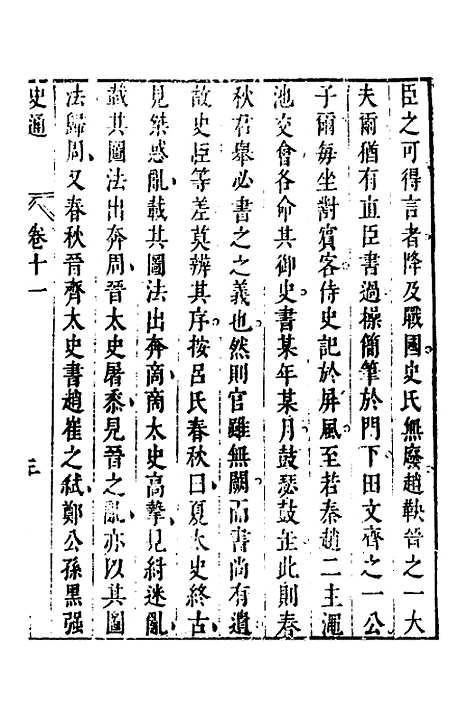 臣之可得言者降及戰國史氏無廢趙鞅晉之一大
夫爾猶有直臣書過操簡筆於門下田文齊之一公
子爾每坐對賓客侍史記於屏風至若秦趙二主澠
池交會各命其御史書某年某月鼓瑟鼓缶此則春
秋君舉必書之之義也然則官雖無闕而書尚有遺
故史臣等差莫辨其序按呂氏春秋曰夏太史終古
見桀惑亂載其圖法出奔商商太史高擊見紂迷亂
載其圖法出奔周晉太史屠黍見晉之亂亦以其圖
法歸周又春秋晉齊太史書趙崔之弒鄭公孫黑强
史通
卷十一
三